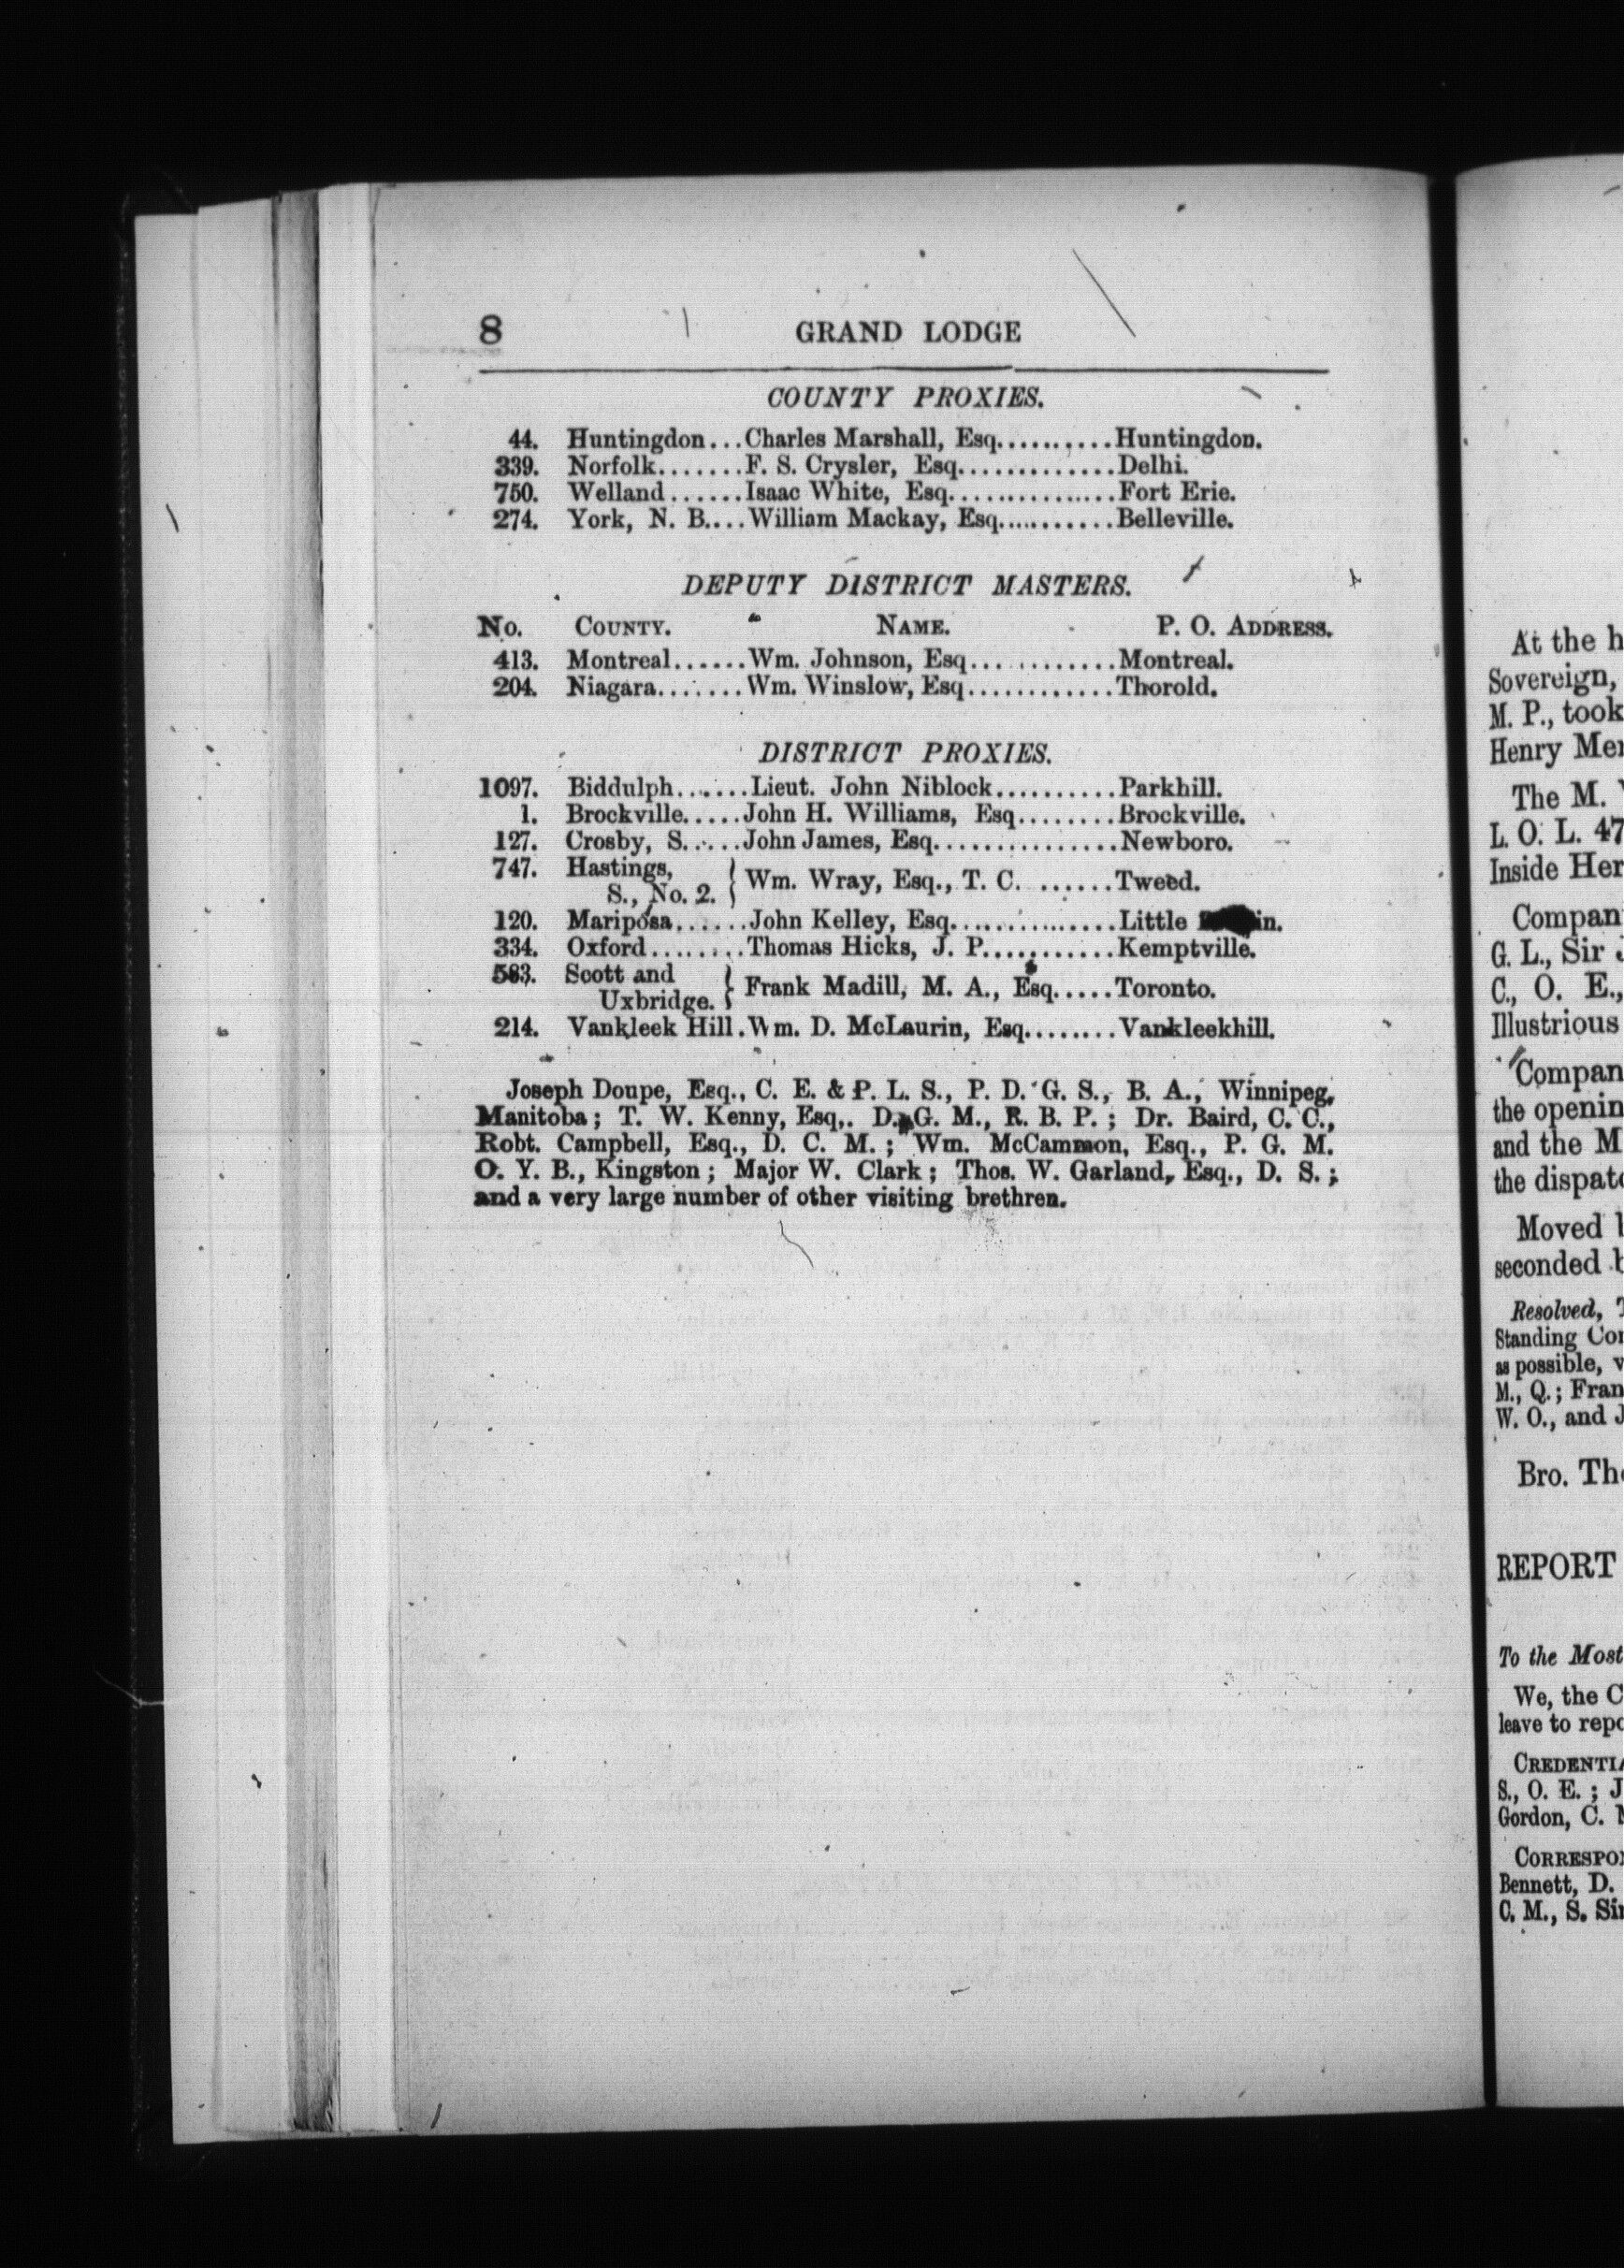 8 GRAND LODGE
COUNTY PROXIES.
44. Huntingdon...Charles Marshall, Esq..........Huntingdon.
339. Norfolk.......F. S. Crysler, Esq.............Delhi.
750. Welland......Isaac White, Esq...............Fort Erie.
274. York, N. B....William Mackay, Esq...........Belleville.
DEPUTY DISTRICT MASTERS.
No. COUNTY. NAME. P. O. ADDRESS.
413. Montreal......Wm. Johnson, Esq............Montreal.
204. Niagara.......Wm. Winslow, Esq............Thorold.
DISTRICT PROXIES.
1097. Biddulph......Lieut. John Niblock..........Parkhill.
1. Brockville.....John H. Williams, Esq........Brockville.
127. Crosby, S.....John James, Esq...............Newboro.
747. Hastings,
S., No. 2. } Wm. Wray, Esq., T. C. .......Tweed.
120. Mariposa......John Kelley, Esq..............Little
334. Oxford........Thomas Hicks, J. P...........Kemptville.
583. Scott and
Uxbridge. } Frank Madill, M. A., Esq.....Toronto.
214. Vankleek Hill.Wm. D. McLaurin, Esq........Vankleekhill.
Joseph Doupe, Esq., C. E. & P. L. S., P. D. G. S., B. A., Winnipeg,
Manitoba; T. W. Kenny, Esq,. D. G. M., R. B. P.; Dr. Baird, C. C.,
Robt. Campbell, Esq., D. C. M.; Wm. McCammon, Esq., P. G. M.
O. Y. B., Kingston; Major W. Clark; Thos. W. Garland, Esq., D. S.;
and a very large number of other visiting brethren.
At the h
Sovereign,
M. P., took
Henry Mer
The M.
L. O. L. 47
Inside Her
Compan
G. L., Sir J
C., O. E.,
Illustrious
Compan
the openin
and the M
the dispatc
Moved
seconded b
Resolved, T
Standing Con
as possible, v
M., Q.; Fran
W. O., and J
Bro. Tho
REPORT
To the Most
We, the C
leave to repo
CREDENTIA
S., O. E.; J
Gordon, C. M
CORRESPON
Bennett, D.
C. M., S. Sin